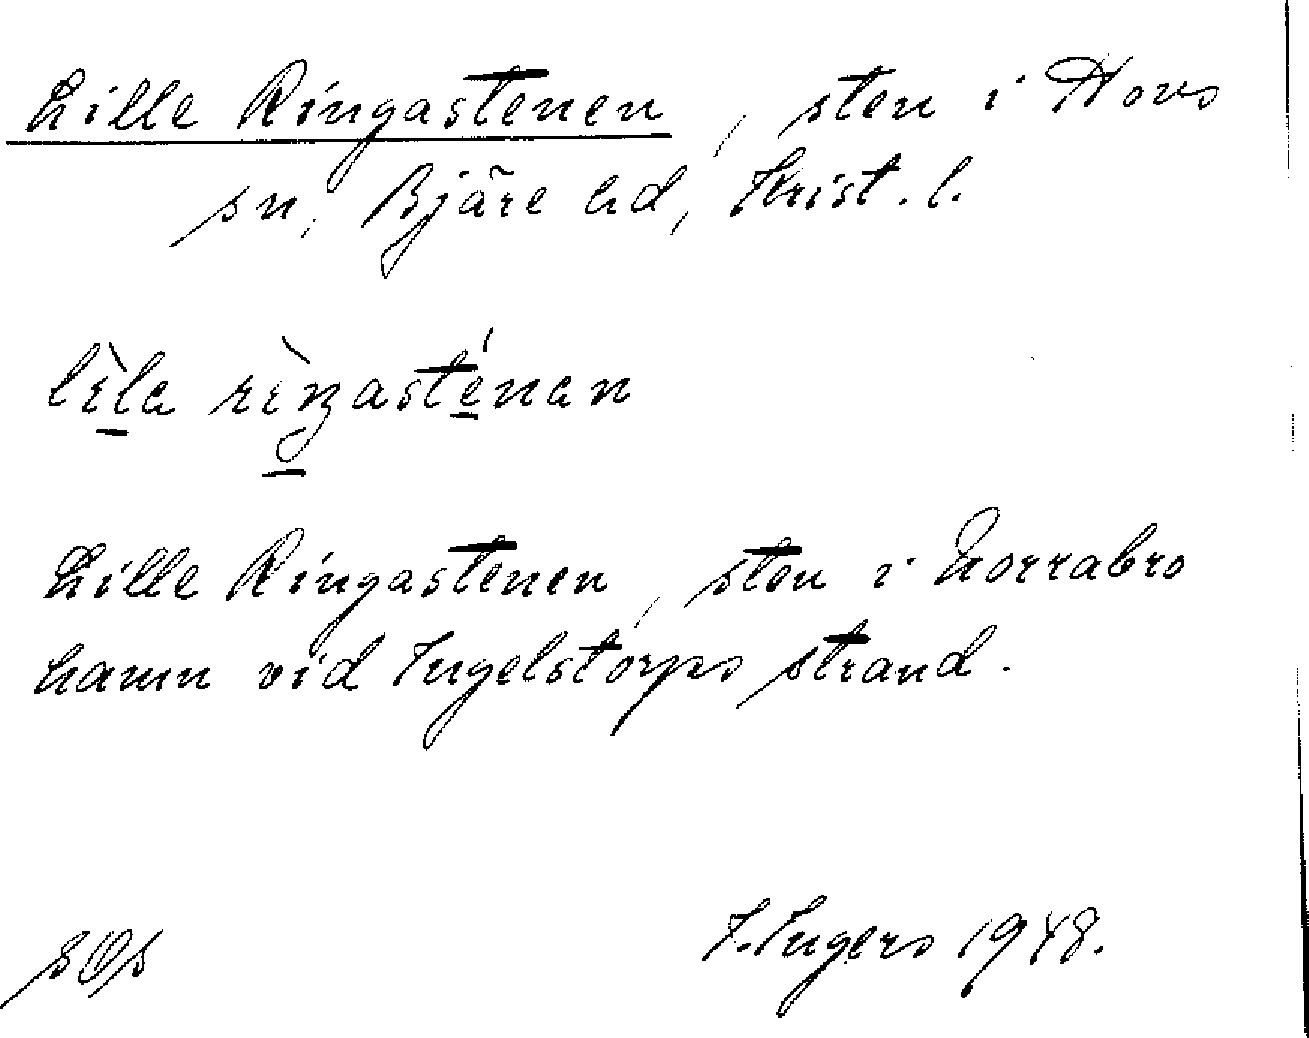 Lille Ringastenen, sten i Hovs
sn, Bjäre hd, Krist. l.
lìla rìŋasténan
Lille Ringastenen, sten i Norrabro
hamn vid Ingelstorps strand.
I. Ingers 1948.